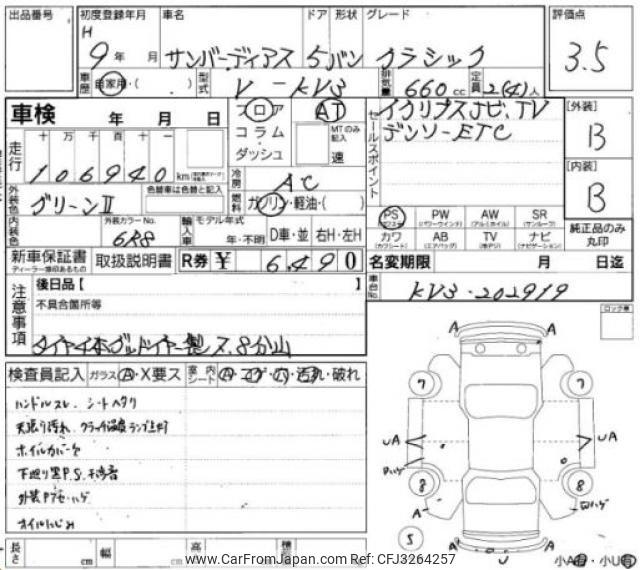 出品番号 初度登録年月 車名 ドア 形状 グレード 評価点
H
9年 月 サンバーディアス 5バン クラシック 3.5
車歴 自家用・( ) 型式 V-KV3 排気量 660 cc 定員 2(4)人
車検 年 月 日 フロア AT イクリプスナビ、TV [外装]
コラム MTのみ記入 デンソーETC B
ダッシュ 速 セールスポイント
走行 十 万 千 百 十 一
106940 km 冷房 AC [内装]
外装色 グリーンⅡ 色替車は色替と記入 燃料 ガソリン・軽油・( ) B
内装色 外装カラーNo. 6R8 輸入車 モデル年式
年・不明 D車・並 右H・左H
PS パワステ PW (パワーウインド) AW (アルミホイル) SR (サンルーフ)
カワ (カワシート) AB (エアバッグ) TV ナビ (ナビゲーション) 純正品のみ丸印
新車保証書 ディーラー捺印あるもの 取扱説明書 R券 ¥ 6,490 名変期限 月 日迄
注意事項 後日品【 】 車台No. KV3-202919
不具合箇所等 ロック車
タイヤ4本グッドイヤー製 ス.8分山
検査員記入 ガラス A・X要ス 室内シート A・コゲ・穴・汚れ・破れ
ハンドルスレ、シートヘタリ
天張り汚れ、クラッチ温度ランプ点灯
ホイルカバーキズ
下廻り黒P.S.
オイルにじみ
A A
7 7
UA UA
8 8
A A
5 U
長さ cm 幅 cm 高 cm
小A有・小U有
www.CarFromJapan.com Ref: CFJ3264257